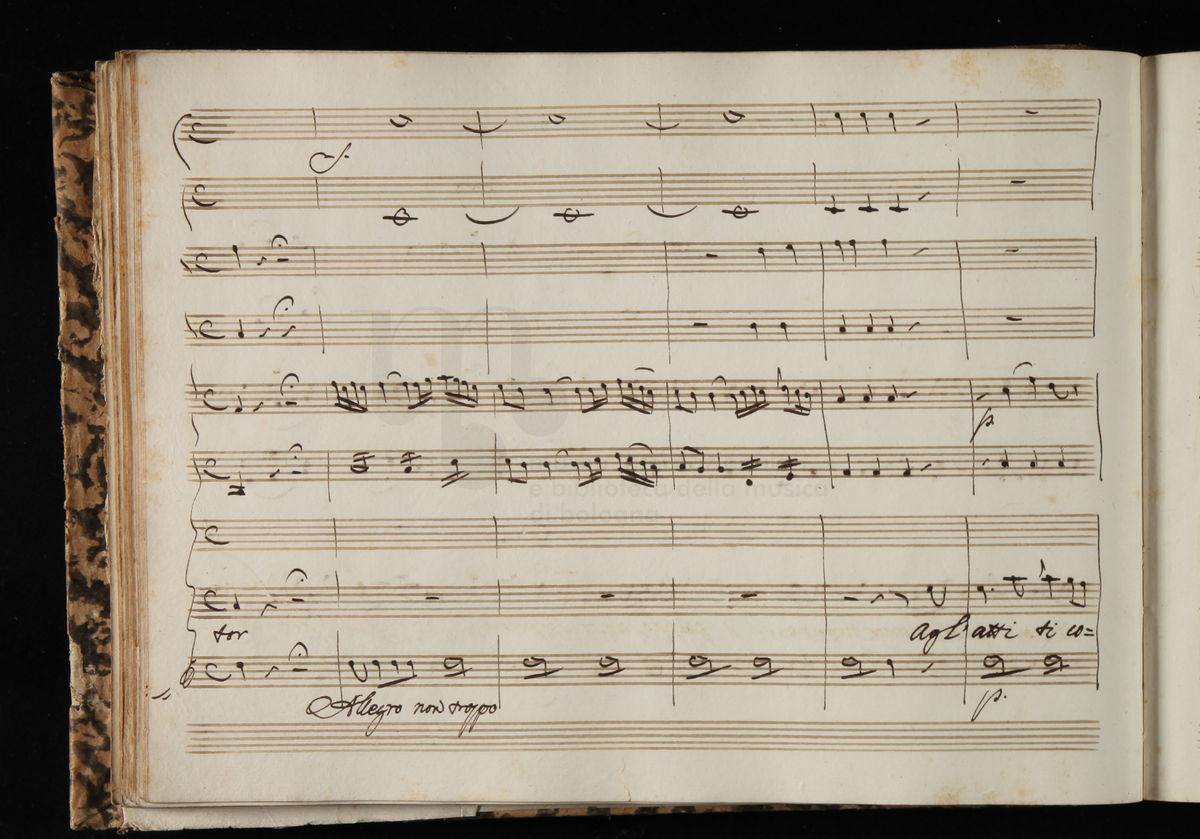 p
e biblioteca della musica
di bologna
tor
Agl' atti ti co=
Allegro non troppo
p.